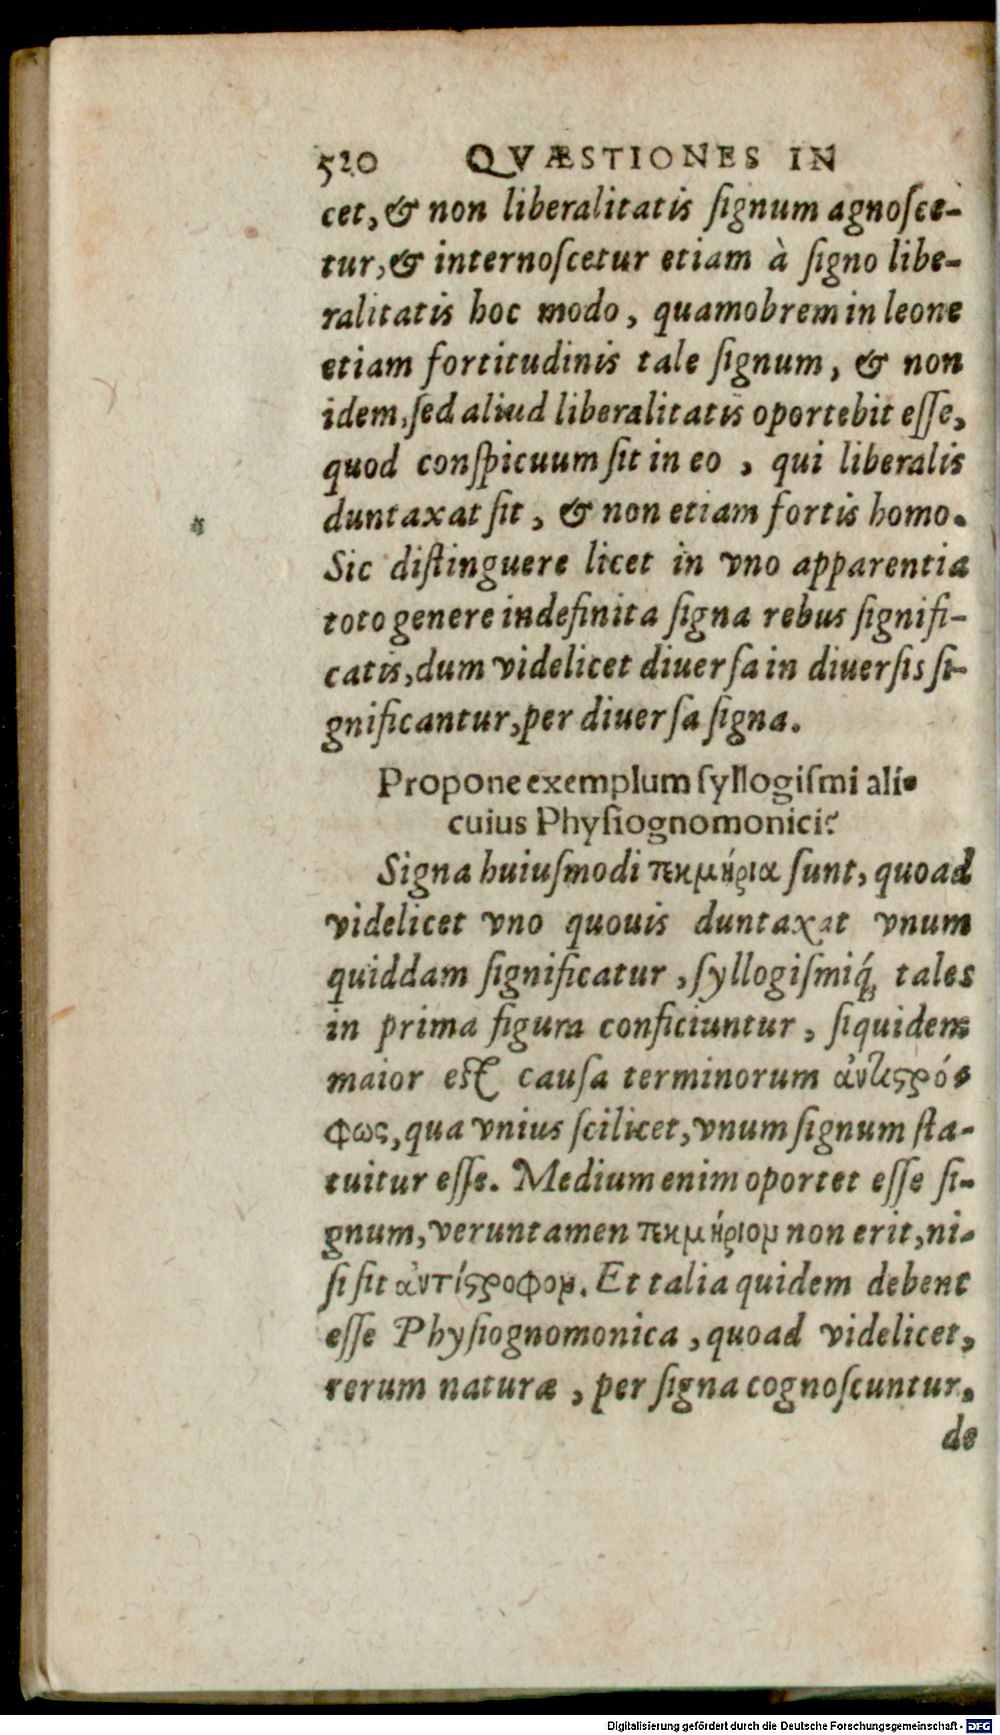 520 QVÆSTIONES IN
cet, & non liberalitatis ſignum agnoſce-
tur, & internoſcetur etiam à ſigno libe-
ralitatis hoc modo, quamobrem in leone
etiam fortitudinis tale ſignum, & non
idem, ſed aliud liberalitatis oportebit eſſe,
quod conſpicuum ſit in eo, qui liberalis
duntaxat ſit, & non etiam fortis homo.
Sic diſtinguere licet in vno apparentia
toto genere indefinita ſigna rebus ſignifi-
catis, dum videlicet diuerſa in diuerſis ſi-
gnificantur, per diuerſa ſigna.
Propone exemplum ſyllogiſmi ali-
cuius Phyſiognomonici?
Signa huiuſmodi τεκμήρια ſunt, quoad
videlicet vno quouis duntaxat vnum
quiddam ſignificatur, ſyllogiſmiq́; tales
in prima figura conficiuntur, ſiquidem
maior eſt cauſa terminorum ἀντιςρό-
φως, qua vnius ſcilicet, vnum ſignum ſta-
tuitur eſſe. Medium enim oportet eſſe ſi-
gnum, veruntamen τεκμήριον non erit, ni-
ſi ſit ἀντίςροφον. Et talia quidem debent
eſſe Phyſiognomonica, quoad videlicet,
rerum naturæ, per ſigna cognoſcuntur,
de
Digitalisierung gefördert durch die Deutsche Forschungsgemeinschaft - DFG